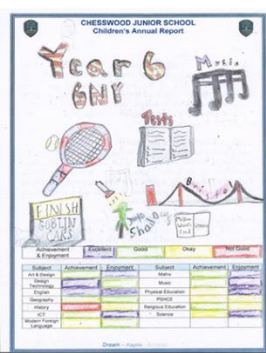 CHESSWOOD JUNIOR SCHOOL
Children's Annual Report
Year 6
6NY
Music
Tests
FINISH
Achievement & Enjoyment
Excellent
Good
Okay
Not Good
Subject Achievement Enjoyment Subject Achievement Enjoyment
Art & Design Maths
Design Technology Music
English Physical Education
Geography PSHCE
History Religious Education
ICT Science
Modern Foreign Language
Dream - Aspire -